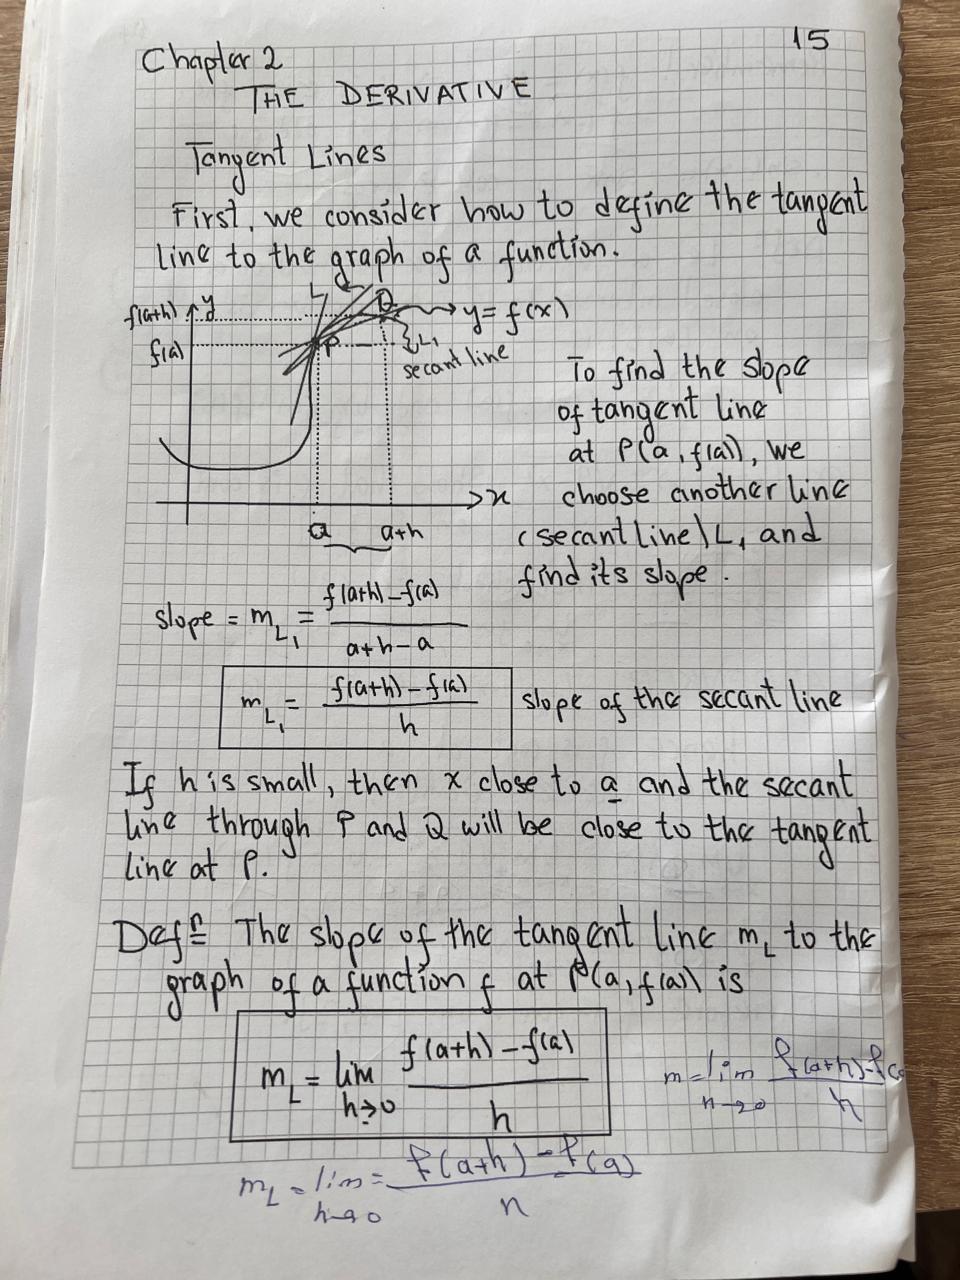 15
Chapter 2
THE DERIVATIVE
Tangent Lines
First, we consider how to define the tangent
line to the graph of a function.
f(a+h) y L Q y = f(x)
f(a) P L₁
secant line
To find the slope
of tangent line
at P(a, f(a)), we
x choose another line
a a+h (secant line) L₁ and
find its slope.
slope = m_L₁ = (f(a+h) - f(a)) / (a+h-a)
m_L₁ = (f(a+h) - f(a)) / h slope of the secant line
If h is small, then x close to a and the secant
line through P and Q will be close to the tangent
line at P.
Defⁿ The slope of the tangent line m_L to the
graph of a function f at P(a, f(a)) is
m_L = lim h→0 (f(a+h) - f(a)) / h
m = lim h→0 (f(a+h) - f(a / h
m_L = lim h→0 = (f(a+h) - f(a)) / h